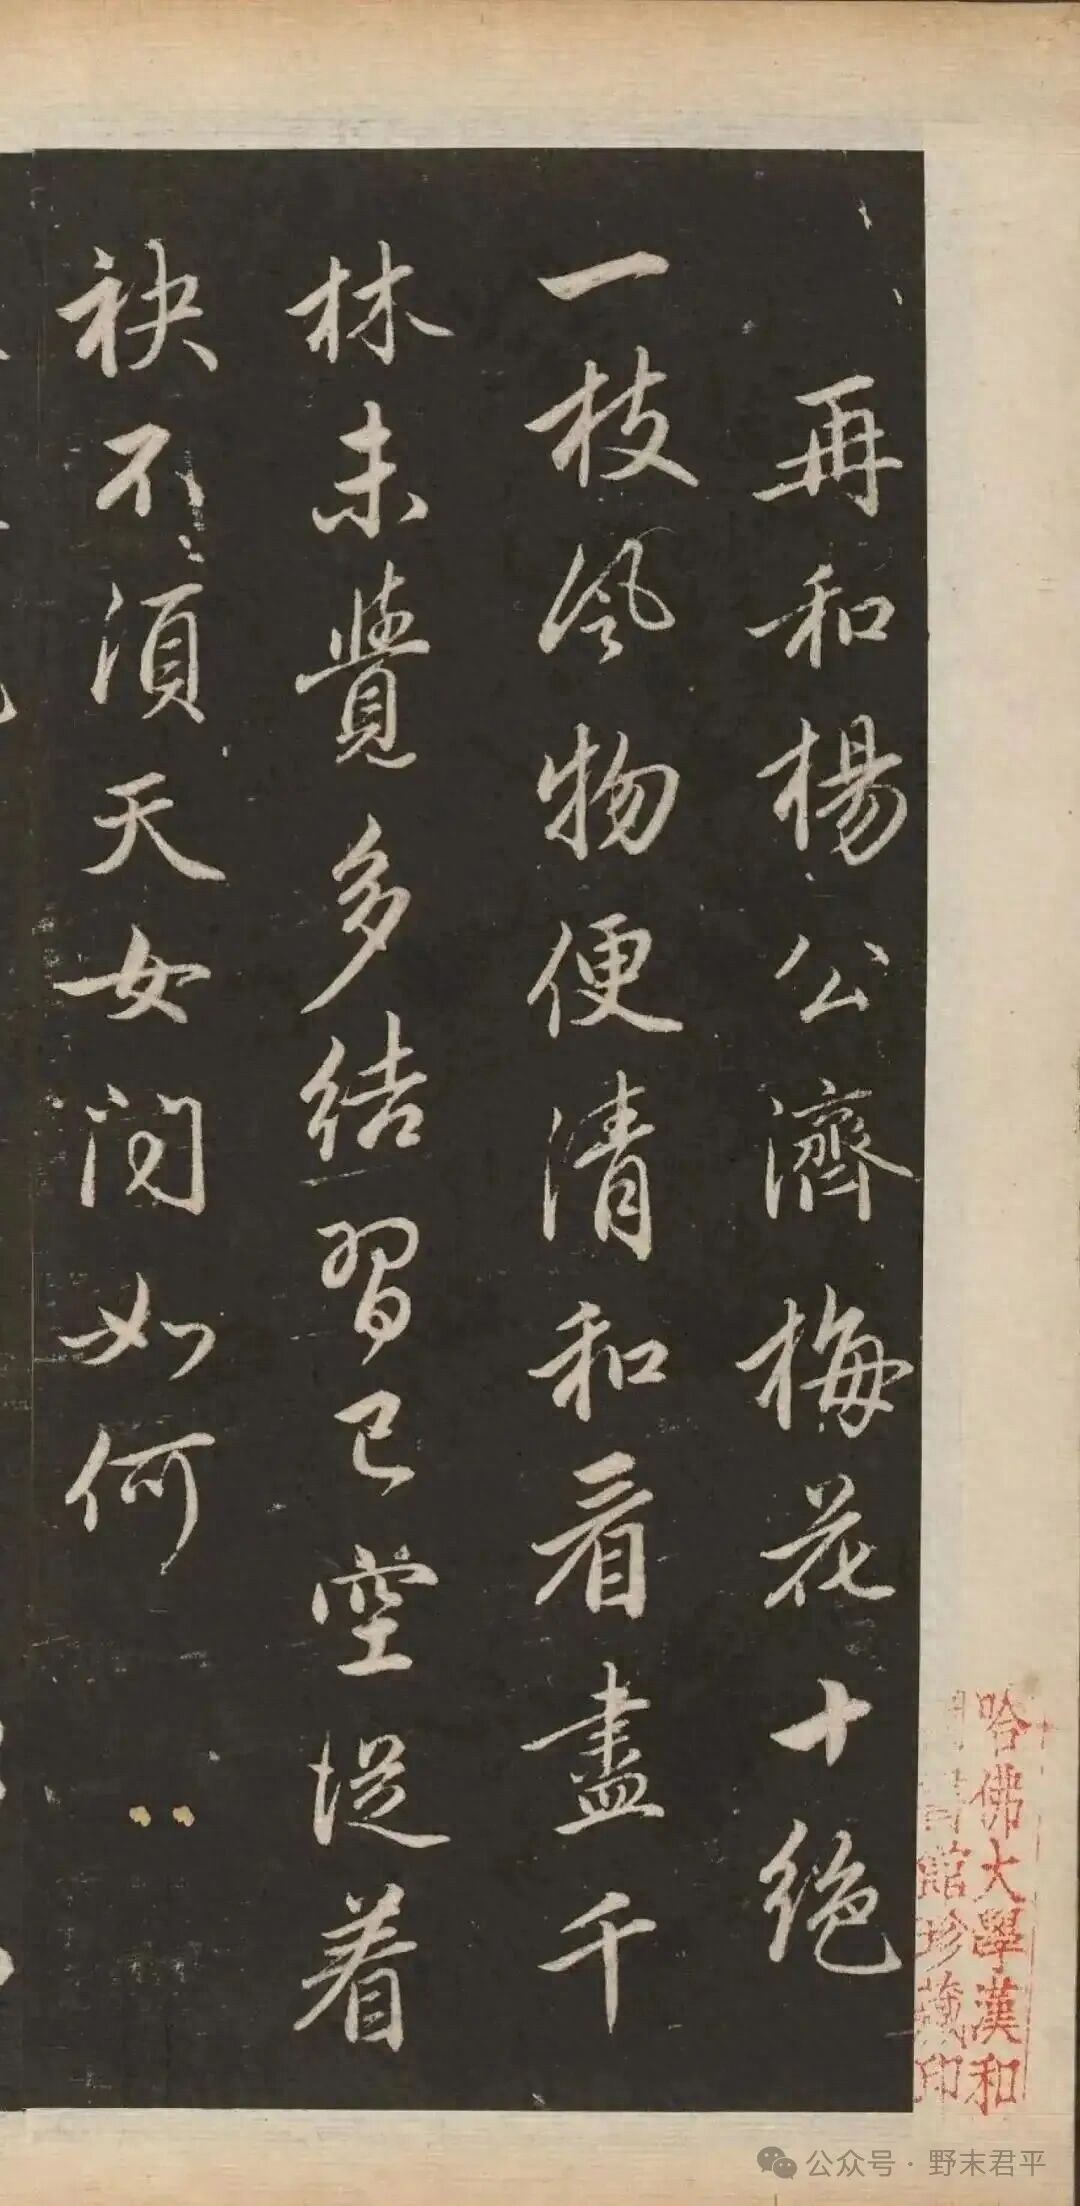 再和楊公濟梅花十絕
一枝風物便清和看盡千
林未覺多結習已空從着
袂不須天女問如何
哈佛大學漢和
圖書館珍藏印
公众号·野末君平